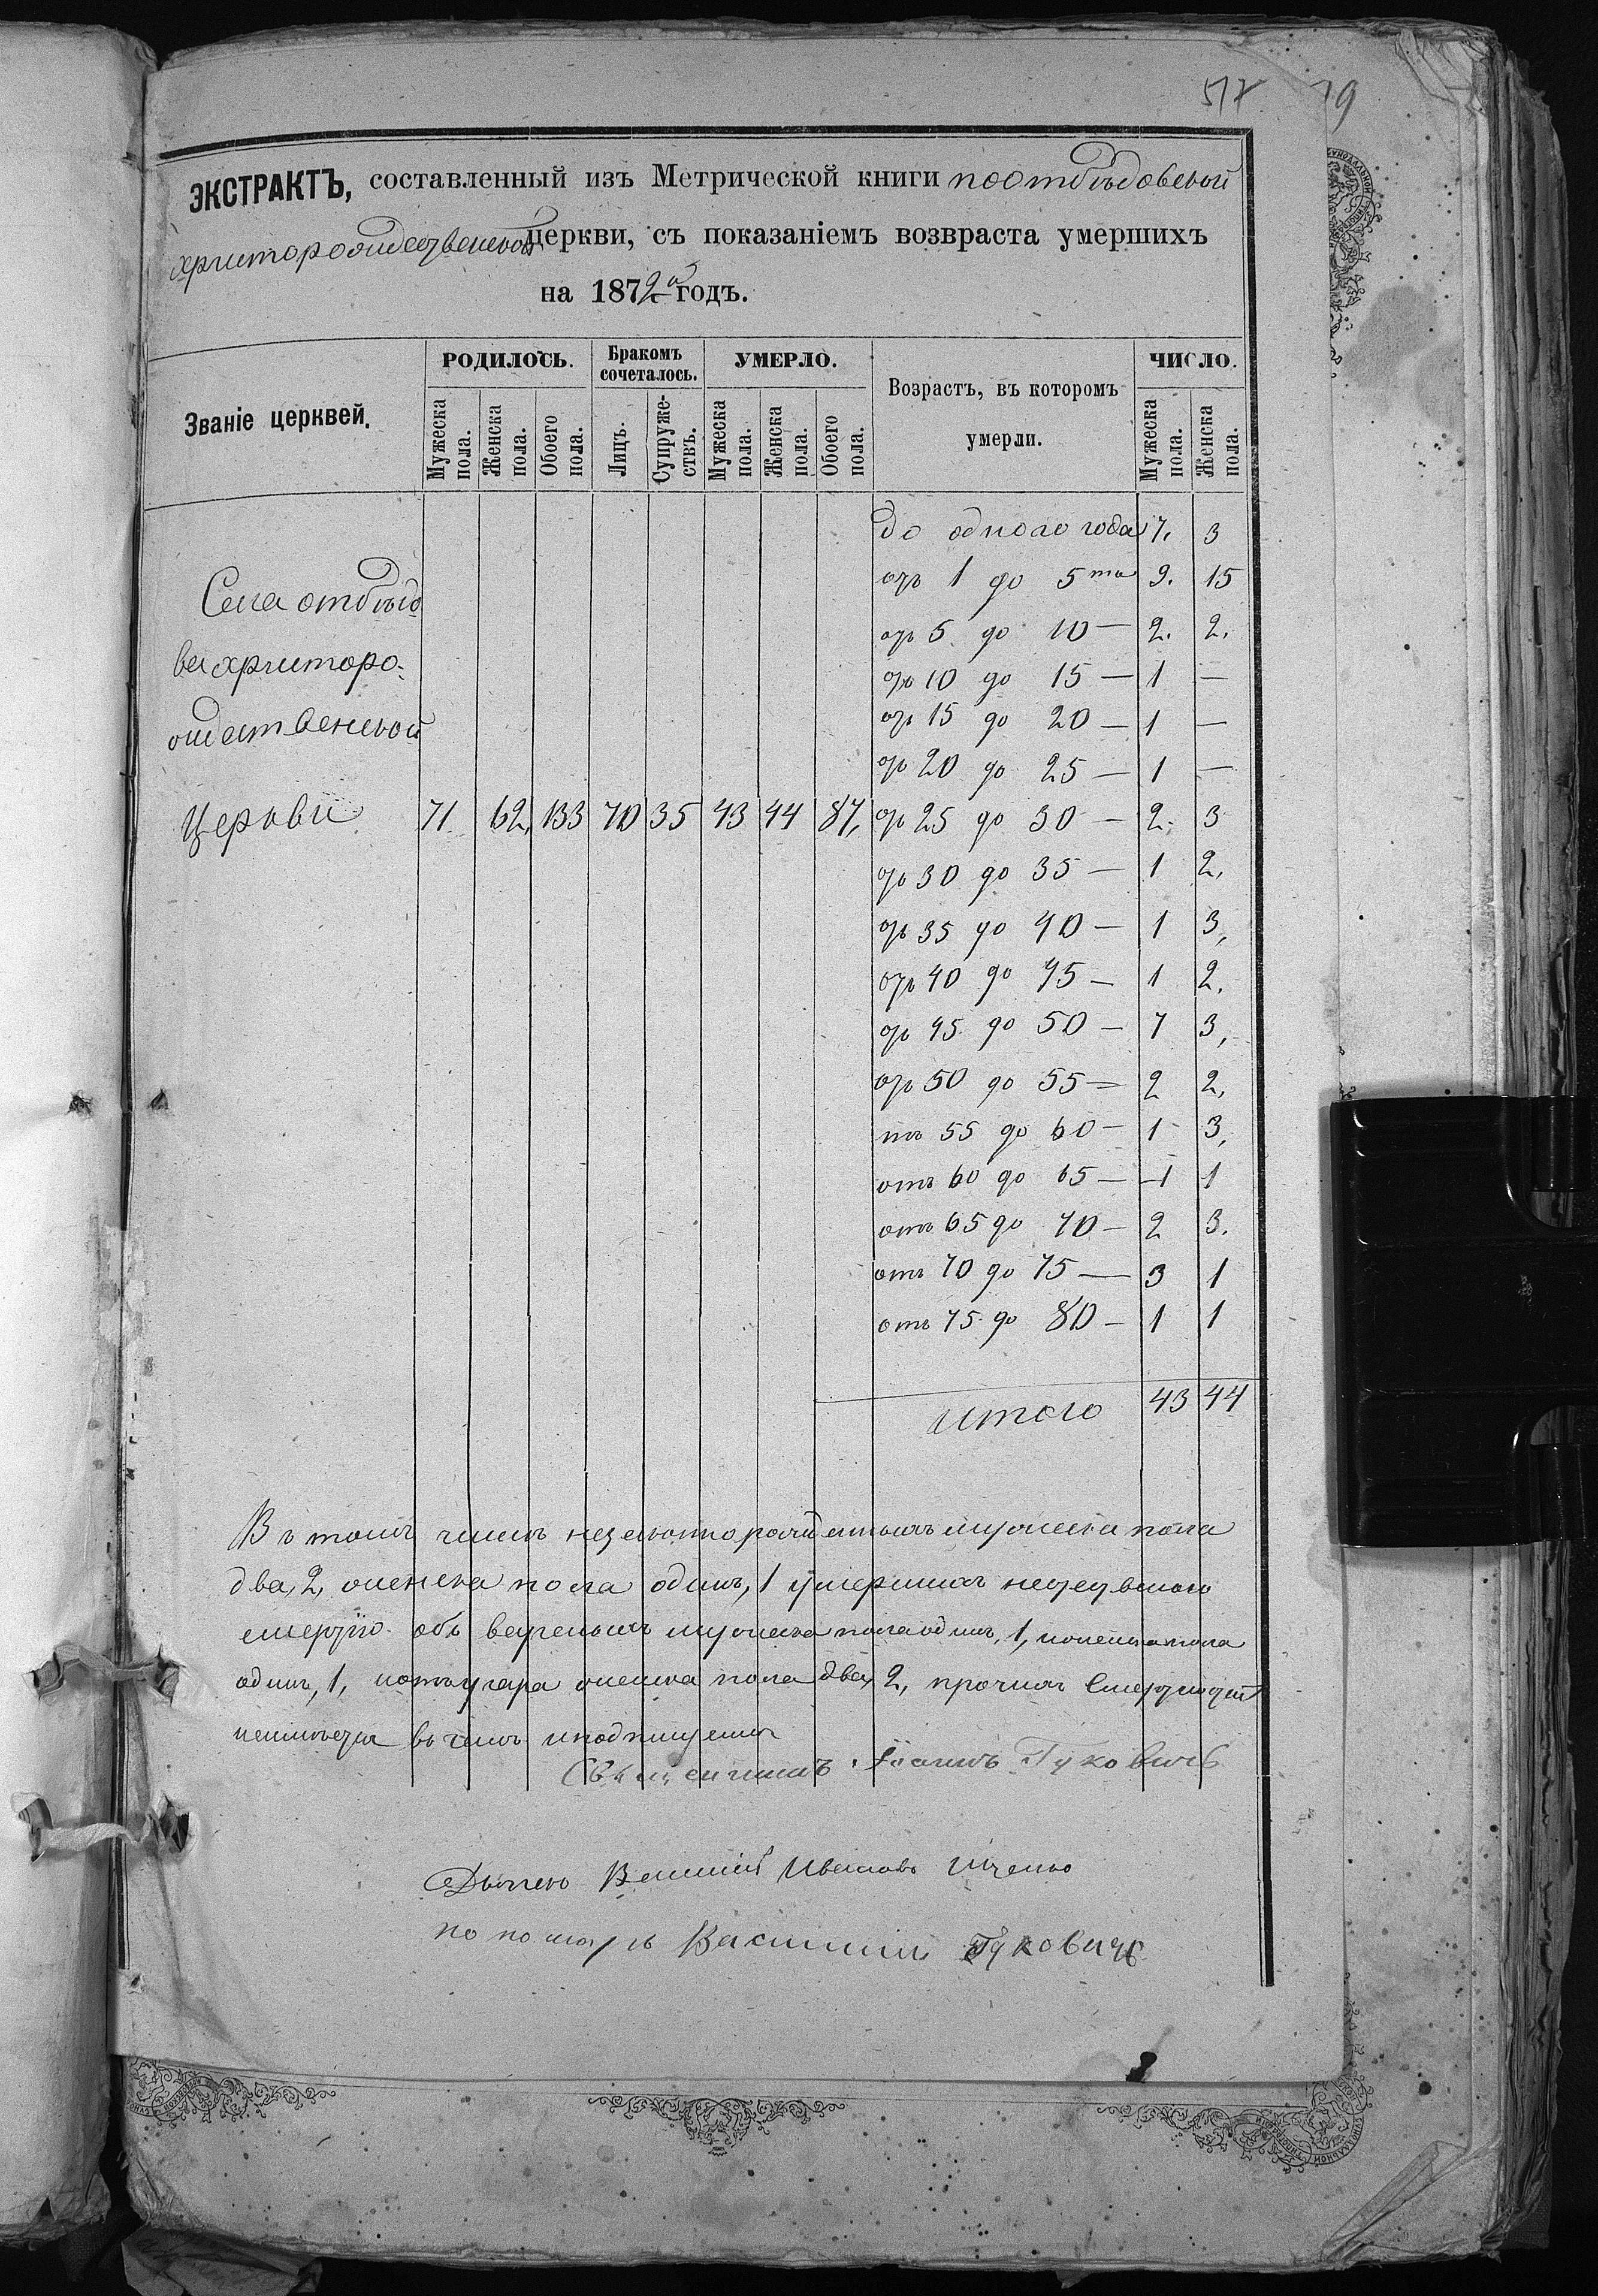 517 19
ЭКСТРАКТЪ, составленный изъ Метрической книги по отбѣдовской
христорождественской церкви, съ показаніемъ возвраста умершихъ
на 1872й годъ.
Званіе церквей.
РОДИЛОСЬ.
Мужеска пола.
Женска пола.
Обоего пола.
Бракомъ сочеталось.
Лицъ.
Супружествъ.
УМЕРЛО.
Мужеска пола.
Женска пола.
Обоего пола.
Возрастъ, въ которомъ умерли.
ЧИСЛО.
Мужеска пола.
Женска пола.
до одного года 7. 3
отъ 1 до 5ти 9. 15
отъ 5 до 10 — 2. 2.
отъ 10 до 15 — 1 —
отъ 15 до 20 — 1 —
отъ 20 до 25 — 1 —
Села отбѣдо
ва христоро-
ждественской
Церкви 71 62, 133 70 35 43 44 87,
отъ 25 до 30 — 2. 3
отъ 30 до 35 — 1 2,
отъ 35 до 40 — 1 3,
отъ 40 до 45 — 1 2.
отъ 45 до 50 — 7 3,
отъ 50 до 55 — 2 2,
отъ 55 до 60 — 1 3,
отъ 60 до 65 — 1 1
отъ 65 до 70 — 2 3.
отъ 70 до 75 — 3 1
отъ 75 до 80 — 1 1
итого 43 44
Въ томъ числѣ незаконнорожденныхъ мужеска пола
два, 2, женска пола одинъ, 1 умершихъ
смертію мужеска пола одинъ, 1, женска пола
одинъ, 1, женска пола два, 2, прочихъ
неимѣется въ чемъ и подпишемся
Священникъ Іоаннъ Гуковичъ
Дьячекъ Василій Ивановъ
пономарь Василій Гуковичъ